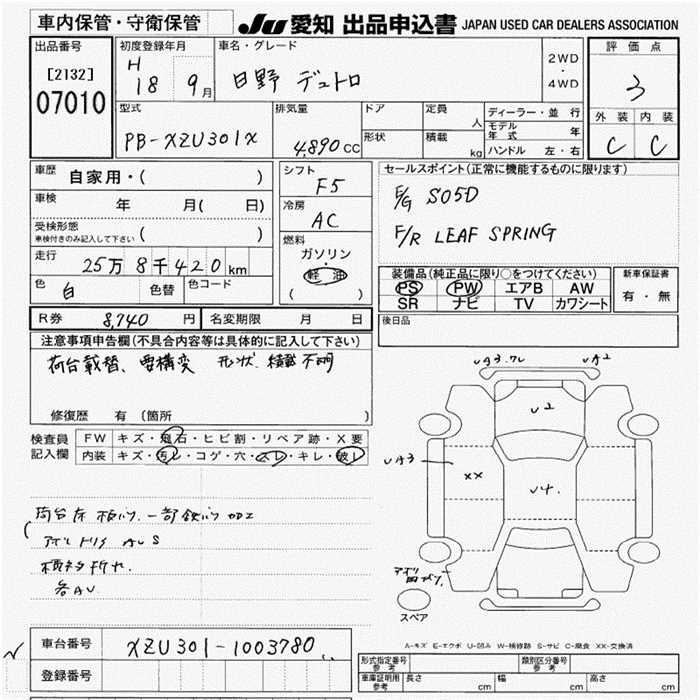 車内保管・守衛保管
JU 愛知 出品申込書 JAPAN USED CAR DEALERS ASSOCIATION
出品番号
[2132]
07010
初度登録年月
H 18 9月
車名・グレード
日野 デュトロ
2WD
・
4WD
評価点
3
外装 内装
C C
型式
PB-XZU301X
排気量
4,890 CC
ドア
形状
定員 人
積載 kg
ディーラー・並行
モデル年式 年
ハンドル 左・右
車歴 自家用・( )
車検 年 月( 日)
受検形態
車検付きのみ記入して下さい ( )
走行 25万8千420km
色 白 色替 色コード
シフト
F5
冷房
AC
燃料
ガソリン
・
軽油
( )
セールスポイント(正常に機能するものに限ります)
E/G S05D
F/R LEAF SPRING
装備品(純正品に限り○をつけてください)
PS PW エアB AW
SR ナビ TV カワシート
新車保証書
有・無
R券 8,740円 名変期限 月 日
後日品
注意事項申告欄(不具合内容等は具体的に記入して下さい)
荷台載替、要構変 形状、積載不明
修復歴 有 (箇所 )
検査員
記入欄
FW キズ・飛石・ヒビ割・リペア跡・X要
内装 キズ・汚レ・コゲ・穴・スレ・キレ・破レ
荷台床
一部鉄
各AU
UA3 UA2
U2
UA3
XX
U4.
スペア
A-キズ E-エクボ U-凹み W-補修跡 S-サビ C-腐食 XX-交換済
車台番号 XZU301-1003780
登録番号
型式指定番号
参考
類別区分番号
参考
車庫証明用
参考
長さ cm 幅 cm 高さ cm